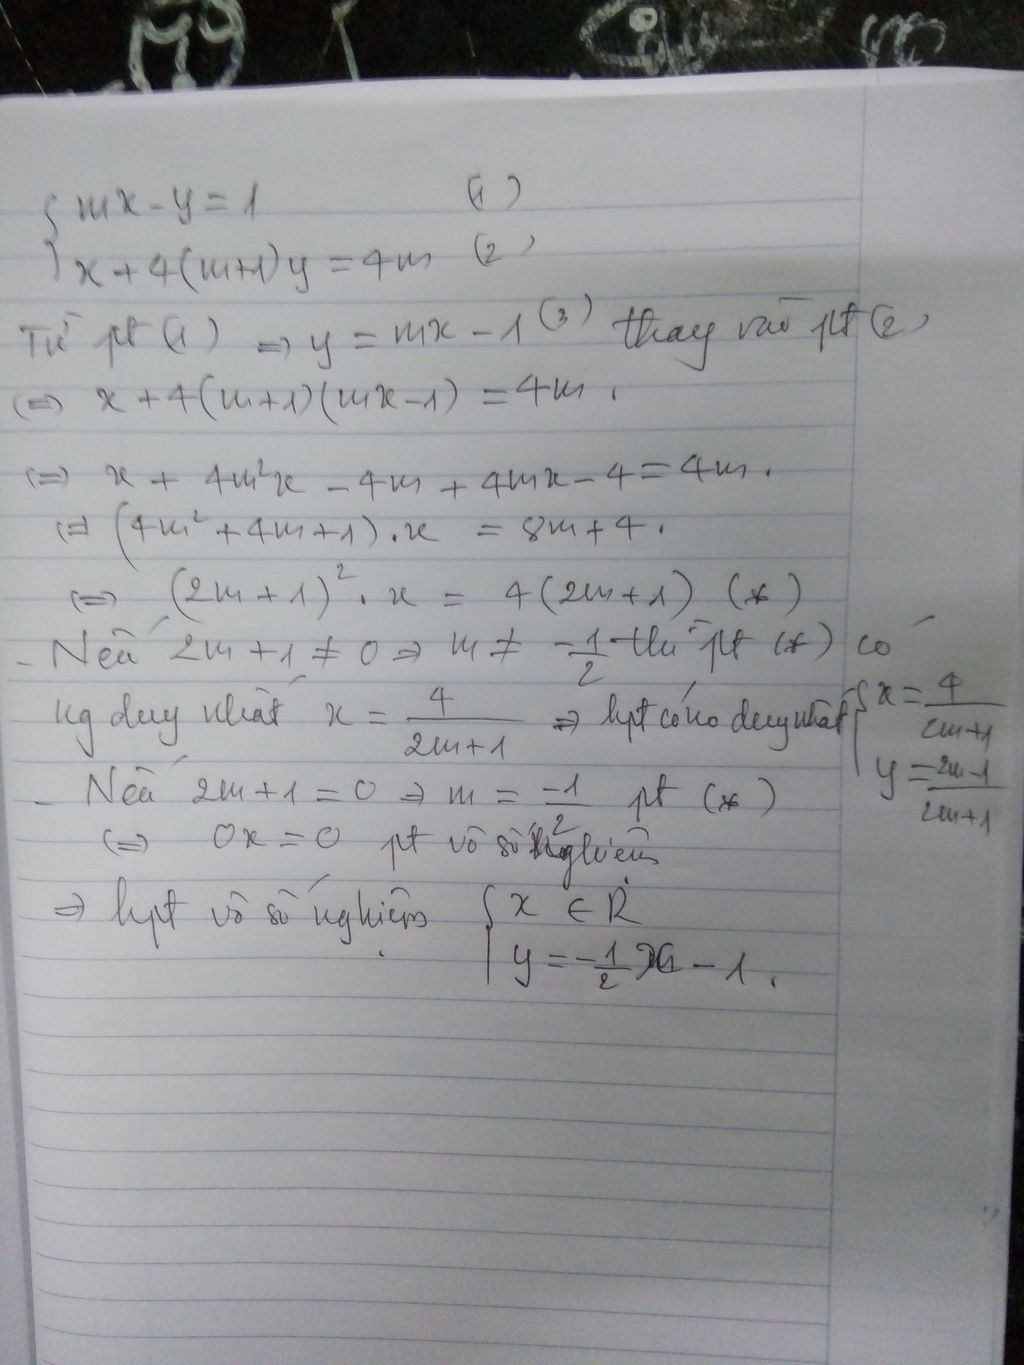 { mx - y = 1 (1)
x + 4(m+1)y = 4m (2)
Từ pt (1) => y = mx - 1 (3) thay vào pt (2)
<=> x + 4(m+1)(mx-1) = 4m.
<=> x + 4m²x - 4m + 4mx - 4 = 4m.
<=> (4m² + 4m + 1).x = 8m + 4.
<=> (2m + 1)².x = 4(2m+1) (*)
- Nếu 2m + 1 ≠ 0 => m ≠ -1/2 thì pt (*) có
ng duy nhất x = 4/(2m+1) => hpt có no duy nhất { x = 4/(2m+1)
y = (2m-1)/(2m+1)
- Nếu 2m + 1 = 0 => m = -1/2 pt (*)
<=> 0x = 0 pt vô số nghiệm
=> hpt vô số nghiệm { x ∈ R
y = -1/2 x - 1.